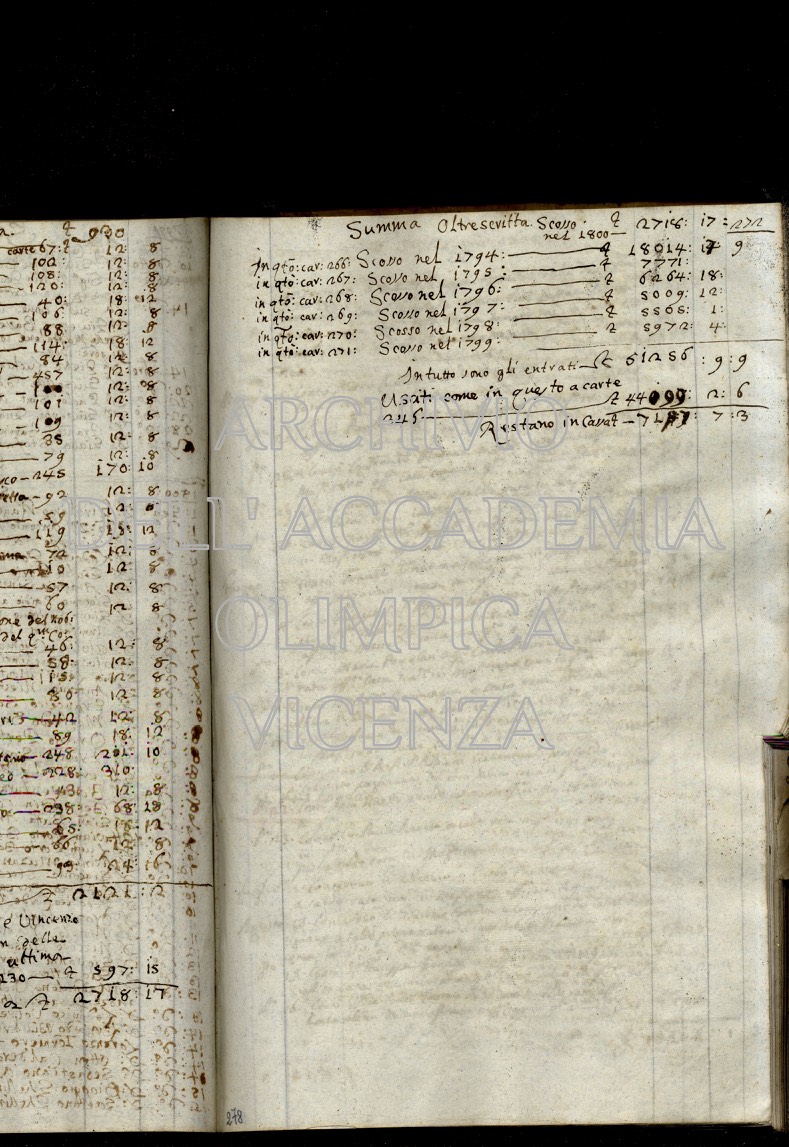 a. £ 930
carte 67: £ 12: 8
102: 12: 8
108: 12: 8
120: 12: 8
40: 18: 12
106: 12: 8
88: 12: 8
114: 18: 12
84 12: 8
457 12: 8
12: 8
101 12: 8
109 12: 8
38 12: 8
79 12: 8
245 170: 10
92 12: 8
59 12:
119 18: 12
72 12: 8
110 12: 8
57 12: 8
60 12: 8
one del nob:
del qm Co:
46: 12: 8
58: 12: 8
115: 12: 8
80 12: 8
42 12: 8
89 18: 12
248 201: 10
228: 310:
43: 12: 8
238: 68: 18
65: 18: 12
66: 12: 8
99: 24: 16
£ 2121: 2
e Vincenzo
n delle
ultima
230 £ 597: 15
a £ 2718: 17
Summa Oltrescritta. Scosso nel 1800 £ 2718: 17: 272
In qto: car: 266: Scosso nel 1794: £ 18014: 17 9
in qto: car: 267: Scosso nel 1795: £ 7771:
in qto: car: 268: Scosso nel 1796: £ 6264: 18:
in qto: car: 269: Scosso nel 1797: £ 5009: 12:
in qto: car: 270: Scosso nel 1798: £ 5565: 1:
in qto: car: 271: Scosso nel 1799: £ 5972: 4:
In tutto sono gli entrati £ 51256: 9: 9
Usati come in questo a carte
246 £ 44099: 2: 6
Restano in Cassa £ 7157: 7: 3
278
ARCHIVIO
DELL'ACCADEMIA
OLIMPICA
VICENZA